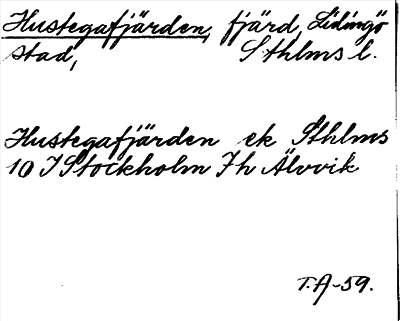 Hustegafjärden, fjärd, Lidingö
stad, Sthlms l.
Hustegafjärden ek Sthlms
10 I Stockholm I h Älvvik
T.A-59.